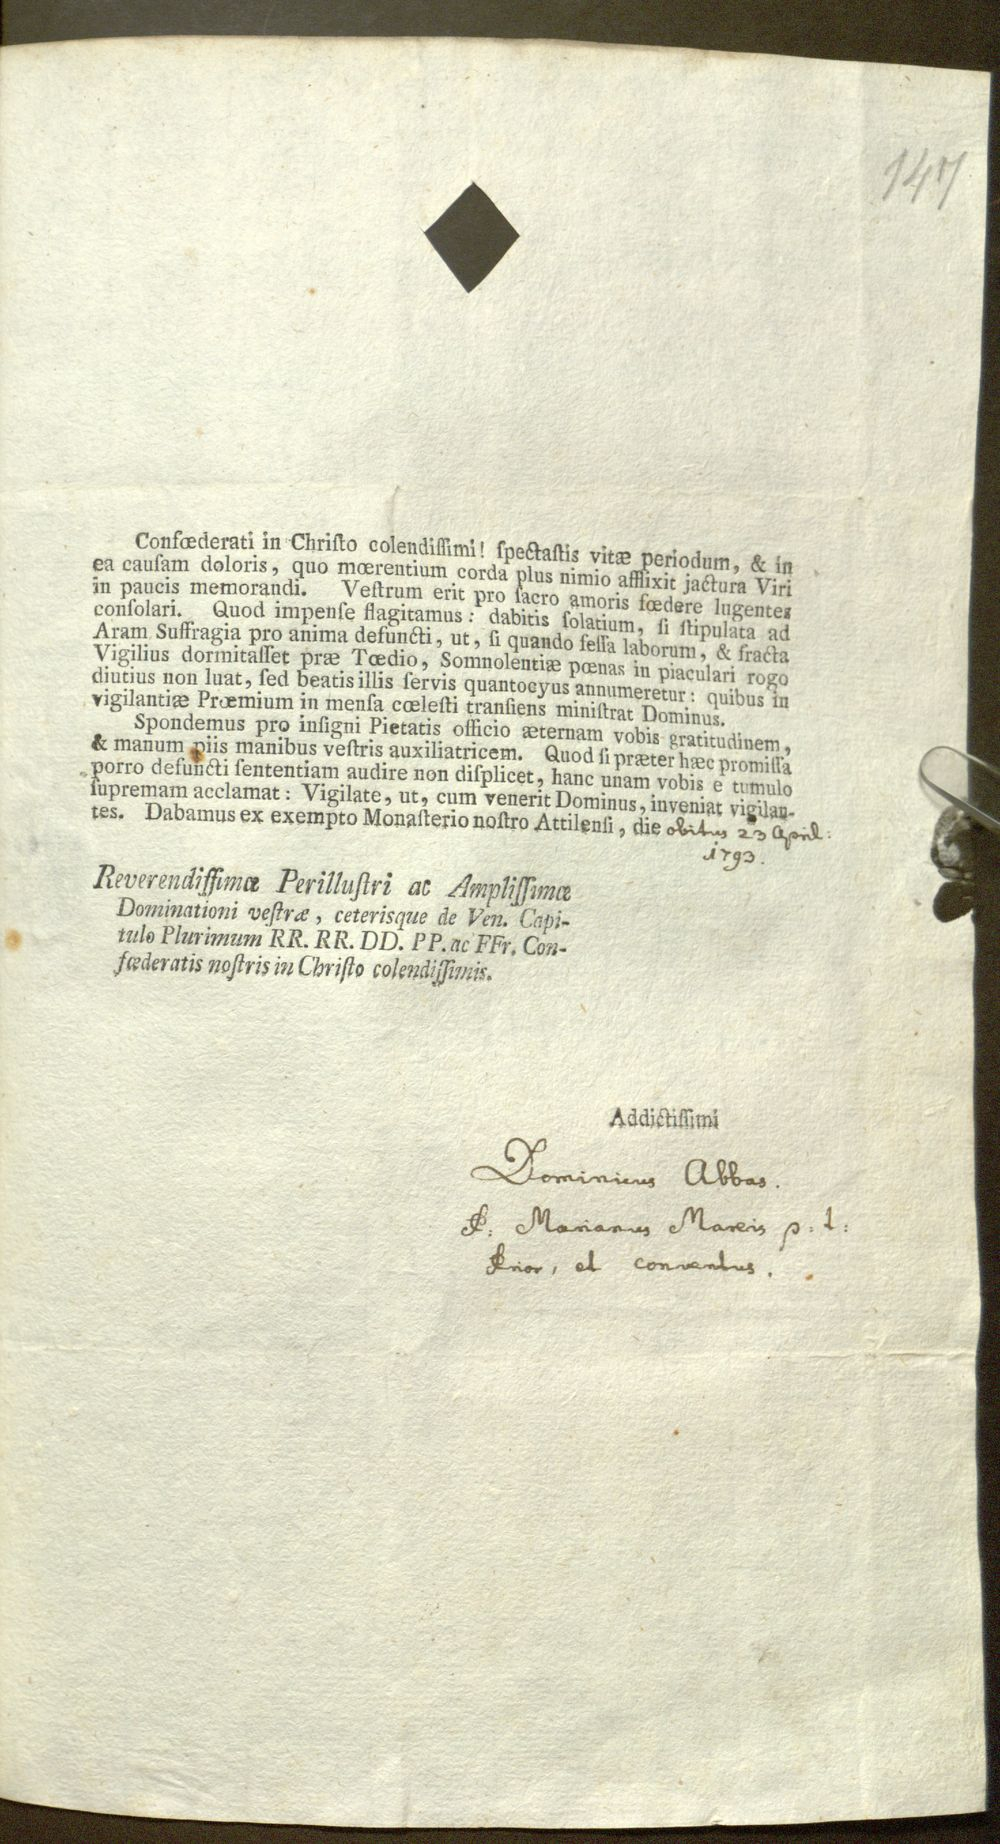 147
Confœderati in Christo colendissimi! spectastis vitæ periodum, & in
ea causam doloris, quo mœrentium corda plus nimio afflixit jactura Viri
in paucis memorandi. Vestrum erit pro sacro amoris fœdere lugentes
consolari. Quod impense flagitamus: dabitis solatium, si stipulata ad
Aram Suffragia pro anima defuncti, ut, si quando fessa laborum, & fracta
Vigilius dormitasset præ Tœdio, Somnolentiæ pœnas in piaculari rogo
diutius non luat, sed beatis illis servis quantocyus annumeretur: quibus in
vigilantiæ Præmium in mensa cœlesti transiens ministrat Dominus.
Spondemus pro insigni Pietatis officio æternam vobis gratitudinem,
& manum piis manibus vestris auxiliatricem. Quod si præter hæc promissa
porro defuncti sententiam audire non displicet, hanc unam vobis e tumulo
supremam acclamat: Vigilate, ut, cum venerit Dominus, inveniat vigilan-
tes. Dabamus ex exempto Monasterio nostro Attilensi, die obitus 23 April:
1793.
Reverendissimæ Perillustri ac Amplissimæ
Dominationi vestræ, ceterisque de Ven. Capi-
tulo Plurimum RR. RR. DD. PP. ac FFr. Con-
fœderatis nostris in Christo colendissimis.
Addictissimi
Dominicus Abbas.
P: Marianus Mareis p: t:
Prior, et conventus.